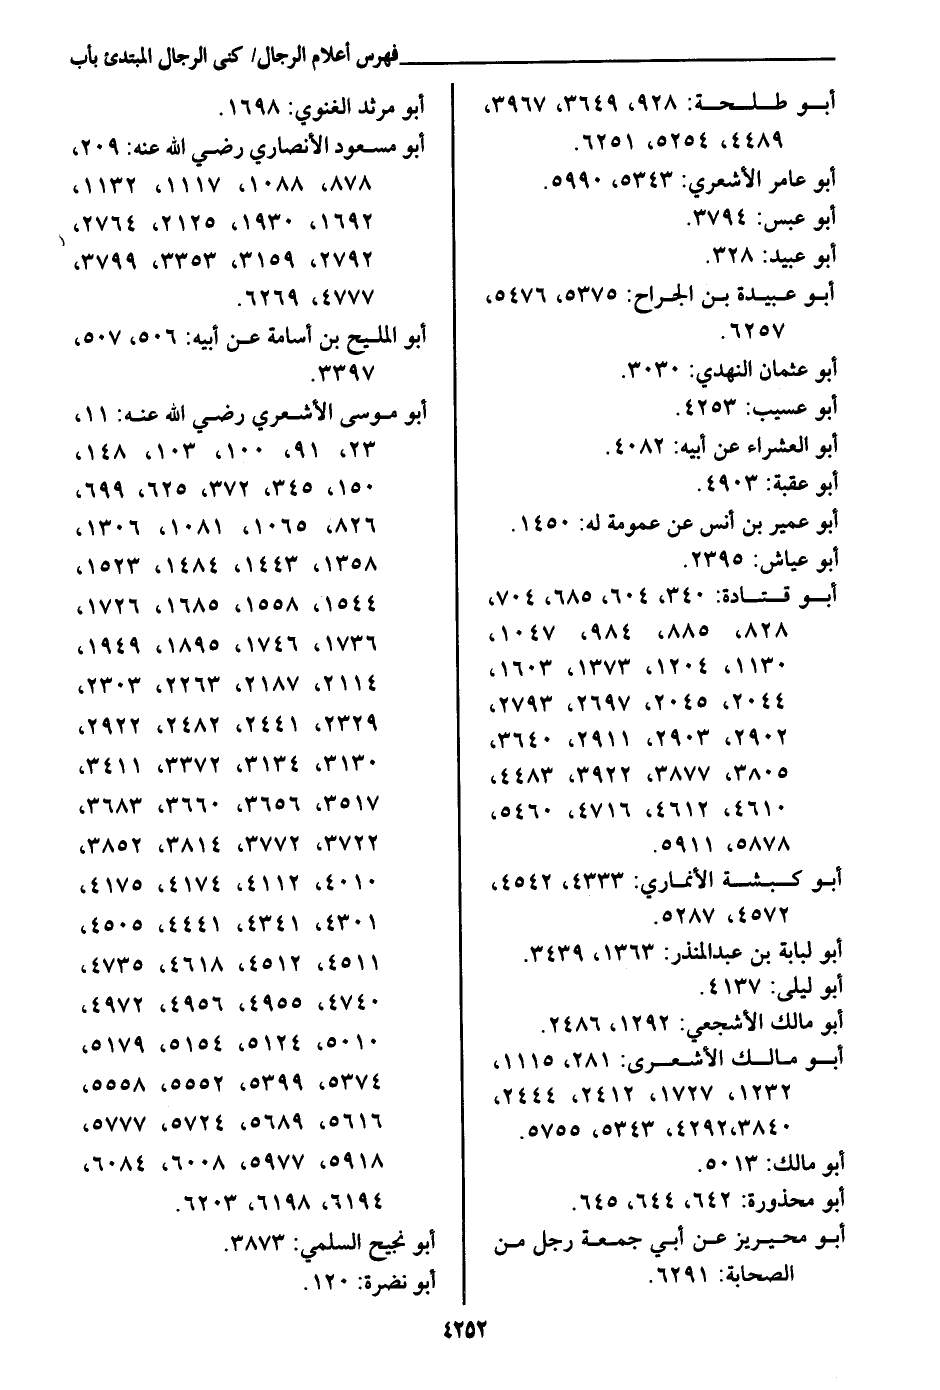 فهرس أعلام الرجال/ كنى الرجال المبتدئ بأب
أبو طلحة: ٩٢٨، ٣٦٤٩، ٣٩٦٧،
٤٤٨٩، ٥٢٥٤، ٦٢٥١.
أبو عامر الأشعري: ٥٣٤٣، ٥٩٩٠.
أبو عبس: ٣٧٩٤.
أبو عبيد: ٣٢٨.
أبو عبيدة بن الجراح: ٥٣٧٥، ٥٤٧٦،
٦٢٥٧.
أبو عثمان النهدي: ٣٠٣٠.
أبو عسيب: ٤٢٥٣.
أبو العشراء عن أبيه: ٤٠٨٢.
أبو عقبة: ٤٩٠٣.
أبو عمير بن أنس عن عمومة له: ١٤٥٠.
أبو عياش: ٢٣٩٥.
أبو قتادة: ٣٤٠، ٦٠٤، ٦٨٥، ٧٠٤،
٨٢٨، ٨٨٥، ٩٨٤، ١٠٤٧،
١١٣٠، ١٢٠٤، ١٣٧٣، ١٦٠٣،
٢٠٤٤، ٢٠٤٥، ٢٦٩٧، ٢٧٩٣،
٢٩٠٢، ٢٩٠٣، ٢٩١١، ٣٦٤٠،
٣٨٠٥، ٣٨٧٧، ٣٩٢٢، ٤٤٨٣،
٤٦١٠، ٤٦١٢، ٤٧١٦، ٥٤٦٠،
٥٨٧٨، ٥٩١١.
أبو كبشة الأنماري: ٤٣٣٣، ٤٥٤٢،
٤٥٧٢، ٥٢٨٧.
أبو لبابة بن عبدالمنذر: ١٣٦٣، ٣٤٣٩.
أبو ليلى: ٤١٣٧.
أبو مالك الأشجعي: ١٢٩٢، ٢٤٨٦.
أبو مالك الأشعرى: ٢٨١، ١١١٥،
١٢٣٢، ١٧٢٧، ٢٤١٢، ٢٤٤٤،
٣٨٤٠،٤٢٩٢، ٥٣٤٣، ٥٧٥٥.
أبو مالك: ٥٠١٣.
أبو محذورة: ٦٤٢، ٦٤٤، ٦٤٥.
أبو محيريز عن أبي جمعة رجل من
الصحابة: ٦٢٩١.
أبو مرثد الغنوي: ١٦٩٨.
أبو مسعود الأنصاري رضي الله عنه: ٢٠٩،
٨٧٨، ١٠٨٨، ١١١٧، ١١٣٢،
١٦٩٢، ١٩٣٠، ٢١٢٥، ٢٧٦٤،
٢٧٩٢، ٣١٥٩، ٣٣٥٣، ٣٧٩٩،
٤٧٧٧، ٦٢٦٩.
أبو المليح بن أسامة عن أبيه: ٥٠٦، ٥٠٧،
٣٣٩٧.
أبو موسى الأشعري رضي الله عنه: ١١،
٢٣، ٩١، ١٠٠، ١٠٣، ١٤٨،
١٥٠، ٣٤٥، ٣٧٢، ٦٢٥، ٦٩٩،
٨٢٦، ١٠٦٥، ١٠٨١، ١٣٠٦،
١٣٥٨، ١٤٤٣، ١٤٨٤، ١٥٢٣،
١٥٤٤، ١٥٥٨، ١٦٨٥، ١٧٢٦،
١٧٣٦، ١٧٤٦، ١٨٩٥، ١٩٤٩،
٢١١٤، ٢١٨٧، ٢٢٦٣، ٢٣٠٣،
٢٣٢٩، ٢٤٤١، ٢٤٨٢، ٢٩٢٢،
٣١٣٠، ٣١٣٤، ٣٣٧٢، ٣٤١١،
٣٥١٧، ٣٦٥٦، ٣٦٦٠، ٣٦٨٣،
٣٧٢٢، ٣٧٧٢، ٣٨١٤، ٣٨٥٢،
٤٠١٠، ٤١١٢، ٤١٧٤، ٤١٧٥،
٤٣٠١، ٤٣٤١، ٤٤٤١، ٤٥٠٥،
٤٥١١، ٤٥١٢، ٤٦١٨، ٤٧٣٥،
٤٧٤٠، ٤٩٥٥، ٤٩٥٦، ٤٩٧٢،
٥٠١٠، ٥١٢٤، ٥١٥٤، ٥١٧٩،
٥٣٧٤، ٥٣٩٩، ٥٥٥٢، ٥٥٥٨،
٥٦١٦، ٥٦٨٩، ٥٧٢٤، ٥٧٧٧،
٥٩١٨، ٥٩٧٧، ٦٠٠٨، ٦٠٨٤،
٦١٩٤، ٦١٩٨، ٦٢٠٣.
أبو نجيح السلمي: ٣٨٧٣.
أبو نضرة: ١٢٠.
٤٢٥٢